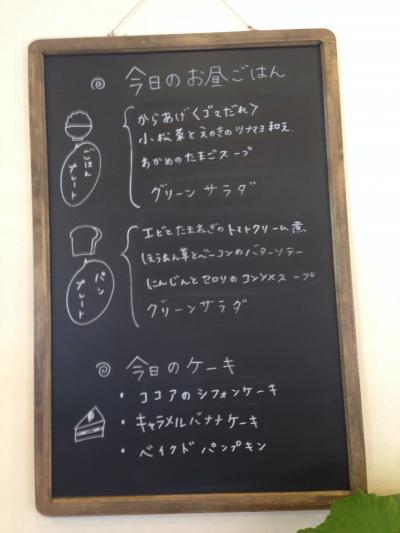 今日のお昼ごはん
ごはん
プレート
からあげ〈ゴマだれ〉
小松菜とえのきのツナマヨ和え
わかめのたまごスープ
グリーンサラダ
パン
プレート
エビとたまねぎのトマトクリーム煮
ほうれん草とベーコンのバターソテー
にんじんとセロリのコンソメスープ
グリーンサラダ
今日のケーキ
・ココアのシフォンケーキ
・キャラメルバナナケーキ
・ベイクドパンプキン